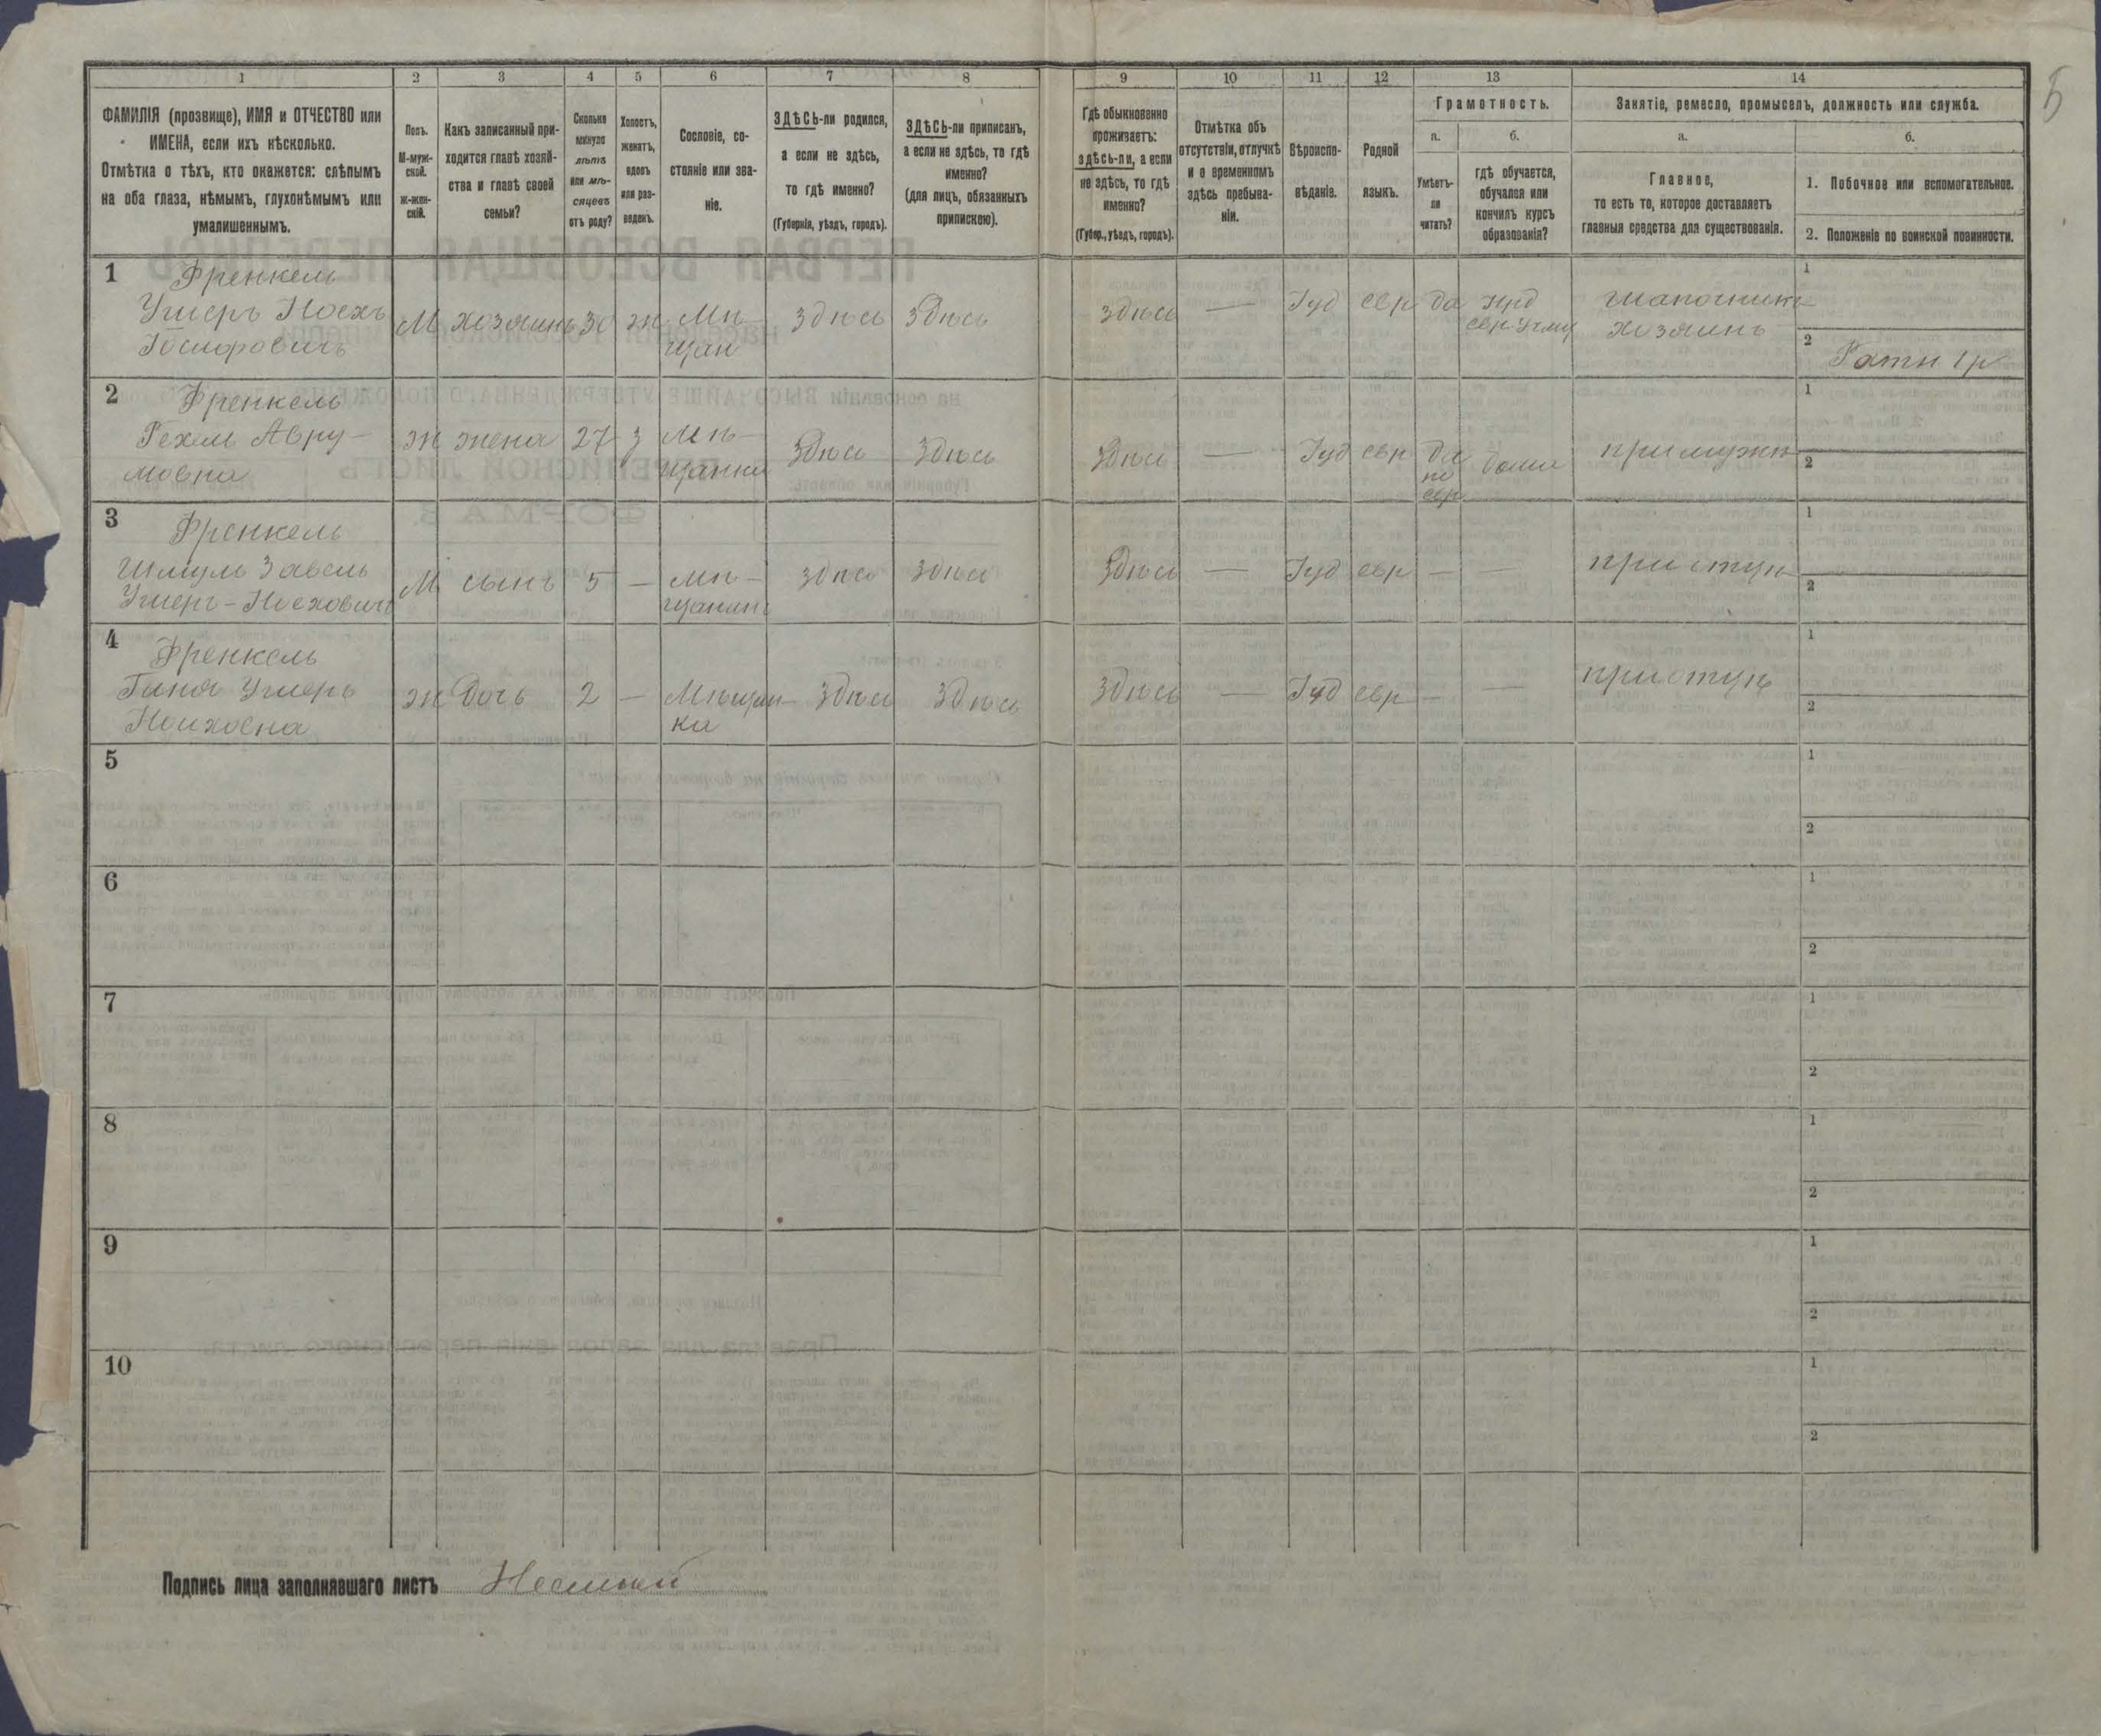 1 2 3 4 5 6 7 8 9 10 11 12 13 14
ФАМИЛІЯ (прозвище), ИМЯ и ОТЧЕСТВО или
ИМЕНА, если ихъ нѣсколько.
Отмѣтка о тѣхъ, кто окажется: слѣпымъ
на оба глаза, нѣмымъ, глухонѣмымъ или
умалишеннымъ.
Полъ.
М-муж-
ской.
ж-жен-
скій.
Какъ записанный при-
ходится главѣ хозяй-
ства и главѣ своей
семьи?
Сколько
минуло
лѣтъ
или мѣ-
сяцевъ
отъ роду?
Холостъ,
женатъ,
вдовъ
или раз-
веденъ.
Сословіе, со-
стояніе или зва-
ніе.
ЗДѢСЬ-ли родился,
а если не здѣсь,
то гдѣ именно?
(Губернія, уѣздъ, городъ).
ЗДѢСЬ-ли приписанъ,
а если не здѣсь, то гдѣ
именно?
(для лицъ, обязанныхъ
припискою).
Гдѣ обыкновенно
проживаетъ:
здѣсь-ли, а если
не здѣсь, то гдѣ
именно?
(Губер., уѣздъ, городъ).
Отмѣтка объ
отсутствіи, отлучкѣ
и о временномъ
здѣсь пребыва-
ніи.
Вѣроиспо-
вѣданіе.
Родной
языкъ.
Грамотность.
а.
Умѣетъ-
ли
читать?
б.
гдѣ обучается,
обучался или
кончилъ курсъ
образованія?
Занятіе, ремесло, промыселъ, должность или служба.
а.
Главное,
то есть то, которое доставляетъ
главныя средства для существованія.
б.
1. Побочное или вспомогательное.
2. Положеніе по воинской повинности.
5
1
Френкель
Ушеръ Носхъ
Іосифовичъ
М хозяинъ 30 ж Мѣ-
щан
здѣсь здѣсь здѣсь — Іуд евр да
шапочникъ
хозяинъ
1
2 Ратн 1 р
2
Френкель
Рехля Авру-
мовна
ж жена 27 з Мѣ-
щанка
здѣсь здѣсь здѣсь — Іуд евр да
по
евр
дома при мужѣ
1
2
3
Френкель
Шмуль Завель
Ушеръ-Носховичъ
М сынъ 5 — мѣ-
щанинъ
здѣсь здѣсь здѣсь — Іуд евр — — при отцѣ
1
2
4
Френкель
Ушеръ
ж дочь 2 — Мѣщан-
ка
здѣсь здѣсь здѣсь — Іуд евр — — при отцѣ
1
2
5
1
2
6
1
2
7
1
2
8
1
2
9
1
2
10
1
2
Подпись лица заполнявшаго листъ